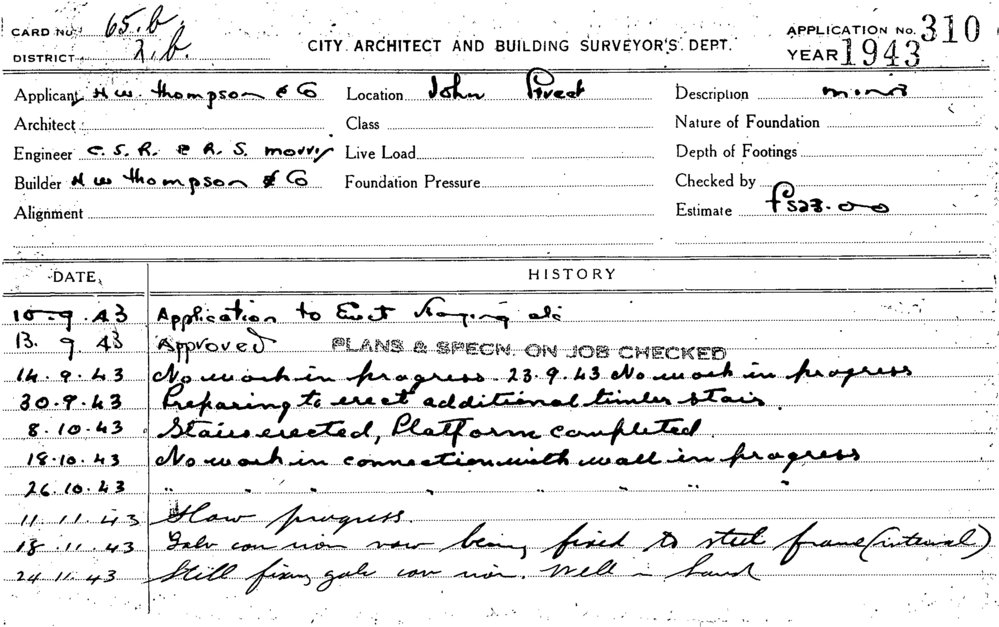 CARD No. 65.b.
DISTRICT 2.b.
CITY ARCHITECT AND BUILDING SURVEYOR'S DEPT.
APPLICATION No. 310
YEAR 1943
Applicant H W. Thompson & Co Location John Street Description minor
Architect Class Nature of Foundation
Engineer C. S. R. & A. S. Morris Live Load Depth of Footings
Builder H W Thompson & Co Foundation Pressure Checked by
Alignment Estimate £523.0.0
DATE HISTORY
10.9.43 Application to Erect Staging etc
13. 9 43 Approved PLANS & SPECN. ON JOB CHECKED
14.9.43 No work in progress 23.9.43 No work in progress
30.9.43 Preparing to erect additional timber stair.
8.10.43 Stairs erected, Platform completed
18.10.43 No work in connection with wall in progress
26.10.43 " " " " " " " "
11.11.43 Slow progress.
18.11.43 Galv corr iron now being fixed to steel frame (internal)
24.11.43 Still fixing galv corr iron. Well in hand